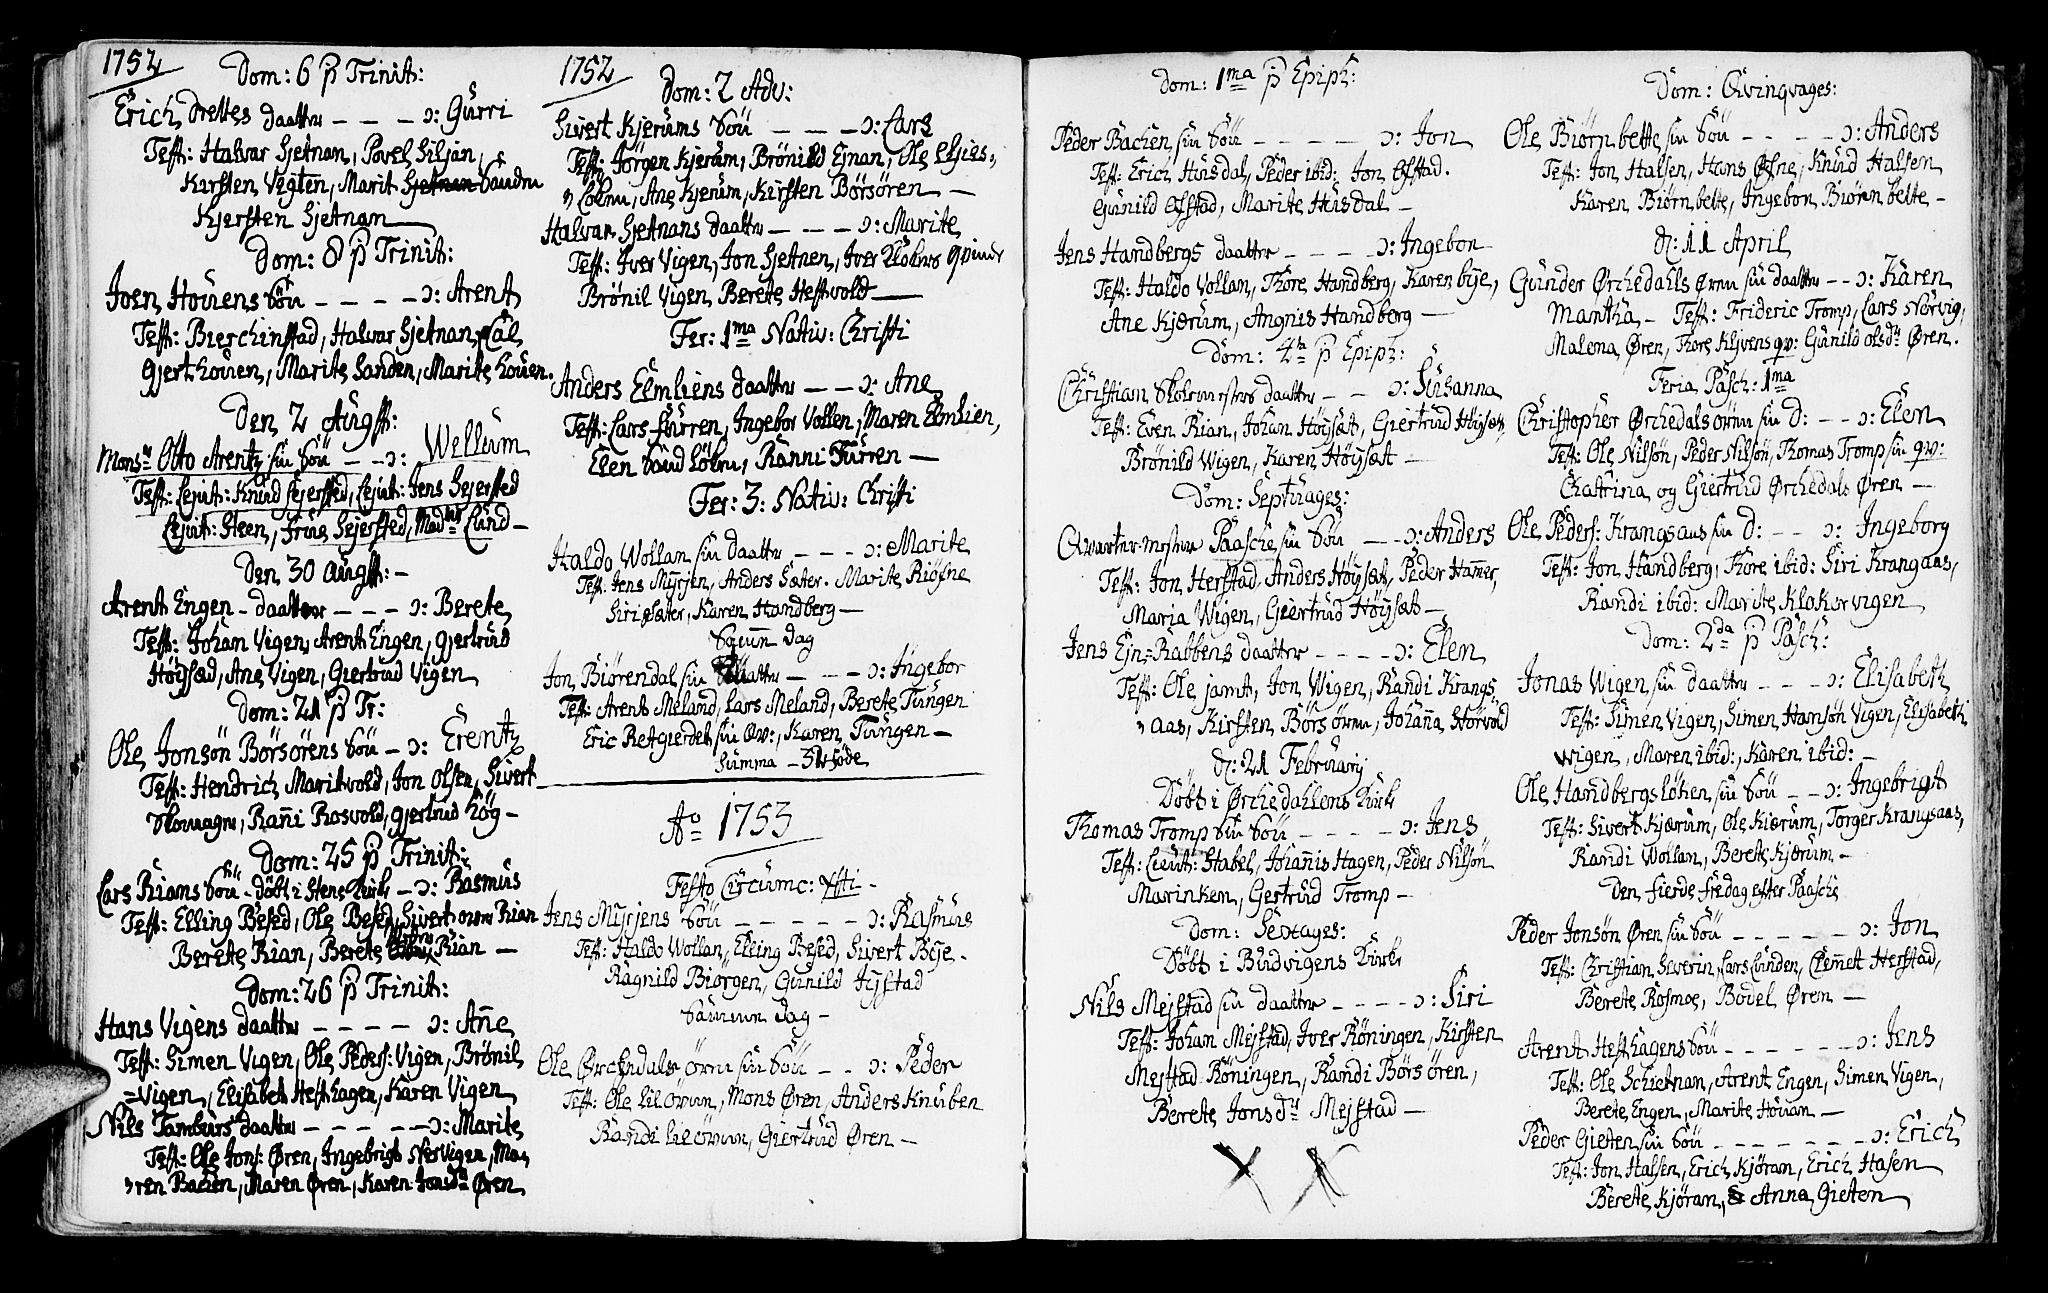 1752
Dom: 6 p Trinit:
Erich Drettes daatter – – – ɔ: Gurri
Test: Halvar Sjetnan, Povel Siljan,
Kirsten Vigten, Marit Sjetnan
Kjersten Sjetnan
Dom: 8 p Trinit:
Joen Houens Søn – – – – ɔ: Arent
Test: Halvar Sjetnan,
Gjert houen, Marite Sanden, Marite houen.
Den 2 Augst:
Monsr Otto Arentz sin Søn – – ɔ: Wellum
Test: Lejut: Knud Sejersted, Lejut: Jens Sejersted
Lejut: Steen, Frue Sejersted, Lund –
Den 30 Augst: –
Arent Engen – daatter – – – ɔ: Berete
Test: Johan Vigen, Arent Engen, Gjertrud
Höysæd, Ane Vigen, Giertrud Vigen
Dom: 21 p Tr:
Ole Jonsön Börsörens Søn – ɔ: Erentz
Test: Hendrich Maritvold, Jon Olsen, Sivert
Rañi Rosvold, Gjertrud Høg –
Dom: 25 p Trinit:
Lars Rians Søn – döbt i Stens Kirk – ɔ: Rasmus
Test: Elling Besed, Ole Besed, Sivert Rian
Berete Rian, Berete Rian –
Dom: 26 p Trinit:
Hans Vigens daatter – – – – ɔ: Añe
Test: Simen Vigen, Ole Peders: Vigen, Brönil
=Vigen, Elisabet Hefthagen, Karen Vigen
Nils Tamburs daatter – – – – – ɔ: Marite
Test: Ole Jons: Øren, Ingebrigt Nervigen, Ma=
ren Bachen, Maren Øren, Karen Jonsdr Øren
1752
Dom: 2 Adv:
Sivert Kjerums Søn – – – ɔ: Lars
Test: Jörgen Kjerum, Brönild Ejnan, Ole
Ane Kjerum, Kirsten Börsören –
Halvar Sjetnans daatter – – – ɔ: Marite
Test: Iver Vigen, Jon Sjetnen, Iver Klokers Qvinde
Brönil Vigen, Berete Heftvold –
Fer: 1ma Nativ: Christi
Anders Elmliens daatter – – ɔ: Ane
Test: Lars Furren, Ingebor Vollen, Maren Elmlien,
Elen Ranni Furren –
Fer: 3: Nativ: Christi
Haldo Wollan sin daatter – – – ɔ: Marite
Test: Jens Myrjen, Anders Sæter. Marite Riöfne
Siri Sæter, Karen Handberg –
dag
Jon Biörendal sin daatter – – – ɔ: Ingebor
Test: Arent Meland, Lars Meland, Berete Tungen
Eric Retgierdet sin Qv:, Karen Tungen –
Summa –
Ao 1753
Festo Circumc: Xsti –
Jens Myrjens Søn – – – – – ɔ: Rasmus
Test: Haldo Wollan, Elling Besed, Sivert Bye –
Ragnild Biörgen, Gunild Tystad
dag –
Ole Søn – – ɔ: Peder
Test: Ole Mons Øren, Anders Knuben
Randi Giertrud Øren –
Dom: 1ma p Epiph:
Peder Bachen sin Søn – – – – – ɔ: Jon
Test: Erich Husdal, Peder ibid: Jon Øfstad.
Gunild Øfstad, Marite Husdal –
Jens Handbergs daatter – – – – ɔ: Ingebor
Test: Haldo Vollan, Thore Handberg, Karen bye,
Ane Kjærum, Angnis Handberg –
Dom: 4ta p Epiph:
Christian Skolemesters daatter – – ɔ: Susanna
Test: Even Rian, Johan Höysæt, Giertrud Höysæt,
Brönild Wigen, Karen Höysæt –
Dom: Septuages:
Paasche sin Søn – – ɔ: Anders
Test: Jon Herstad, Anders Höysæt, Peder Hamer,
Maria Wigen, Giertrud Höysæt –
Jens Ejn=Rabbens daatter – – – – ɔ: Elen
Test: Ole jamt, Jon Wigen, Randi Krangs=
aas, Kirsten Börsören, Johaña Storvold
d: 21 February
Döbt i Ørchedahlens Kirk
Thomas Tromp sin Søn – – – – – ɔ: Jens
Test: Lieut: Stabel, Johañis Hagen, Peder Nilsön
Marinken, Gertrud Tromp –
Dom: Sexages:
Döbt i Budvigens Kirk
Nils Mejstad sin daatter – – – – ɔ: Siri
Test: Johan Mejstad, Iver Röningen, Kirsten
Mejstad Röningen, Randi Börsören,
Berete Jonsdr Mejstad –
Dom: Qvinqvages:
Ole Biörnbette sin Søn – – – – – ɔ: Anders
Test: Jon Halsen, Hans Øfne, Knud Halsen
Karen Biörnbette, Ingebor Biörnbette –
d: 11 April
Gunder Ørchedahls Øren sin daatter – – ɔ: Karen
Mantha – Test: Frideric Tromp, Lars Norvig,
Malena Øren, Thore Klyvens qv: Gunild olsdr Øren.
Feria Pasch: 1ma
Christopher Ørchedalsøren sin D: – – ɔ: Elen
Test: Ole Nilsön, Peder Nilsön, Thomas Tromp sin qv:
Chatrina og Giertrud Ørchedals Øren –
Ole Peders: Krangsaas sin D: – – ɔ: Ingeborg
Test: Jon Handberg, Thore ibid: Siri Krangaas,
Randi ibid: Marite Klokervigen
Dom: 2da p Pasch:
Jonas Wigen sin daatter – – – ɔ: Elisabeth
Test: Simen Vigen, Simen Hansøn Vigen, Elisabeth
Wigen, Maren ibid:, Karen ibid: –
Ole Handbergslöken sin Søn – – ɔ: Ingebrigt
Test: Sivert Kjærum, Ole Kiærum, Torger Krangsaas,
Randi Wollan, Berete Kjærum –
Den fierde fredag efter Paasche
Peder Jonsön Øren sin Søn – – – – – ɔ: Jon
Test: Christian Severin, Lars Lunden, Clemett Herstad,
Berete Rosmoe, Bodel Øren –
Arent Hefthagens Søn – – – – – – ɔ: Jens
Test: Ole Schietnan, Arent Engen, Simen Vigen,
Berete Engen, Marite Houan –
Peder Gieten sin Søn – – – – – – – ɔ: Erich
Test: Jon Halsen, Erich Kjöran, Erich Hasen
Berete Kjöran, Anna Gieten